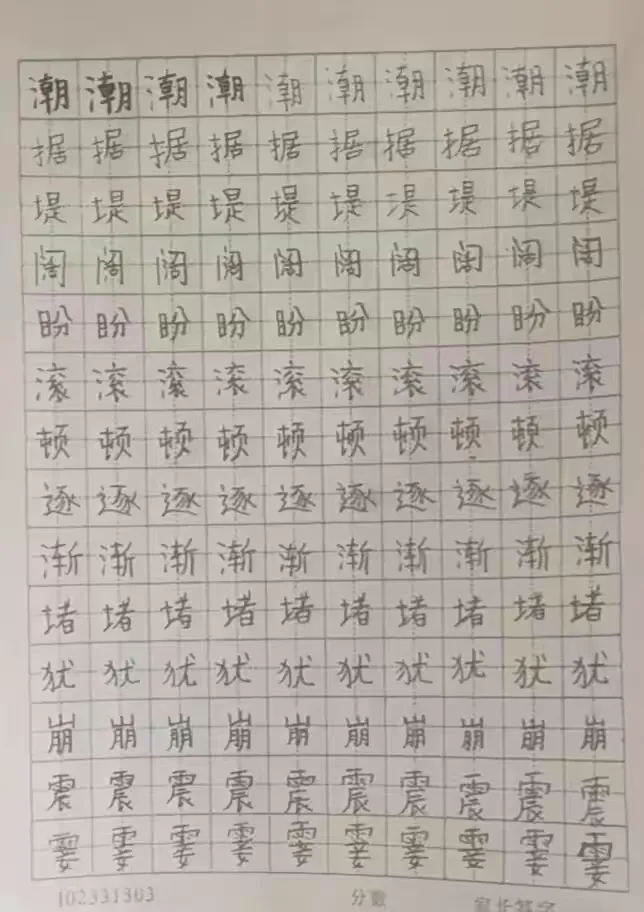 潮潮潮潮潮潮潮潮潮潮
据据据据据据据据据据
堤堤堤堤堤堤堤堤堤堤
阔阔阔阔阔阔阔阔阔阔
盼盼盼盼盼盼盼盼盼盼
滚滚滚滚滚滚滚滚滚滚
顿顿顿顿顿顿顿顿顿顿
逐逐逐逐逐逐逐逐逐逐
渐渐渐渐渐渐渐渐渐渐
堵堵堵堵堵堵堵堵堵堵
犹犹犹犹犹犹犹犹犹犹
崩崩崩崩崩崩崩崩崩崩
震震震震震震震震震震
霎霎霎霎霎霎霎霎霎霎
102331303 分数 家长签字